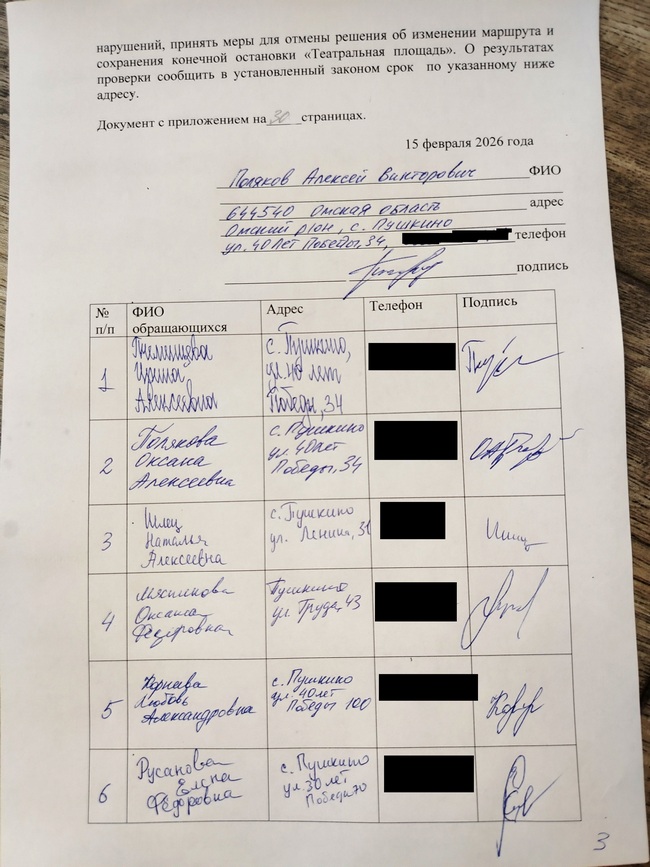 нарушений, принять меры для отмены решения об изменении маршрута и
сохранения конечной остановки «Театральная площадь». О результатах
проверки сообщить в установленный законом срок по указанному ниже
адресу.
Документ с приложением на 30 страницах.
15 февраля 2026 года
Поляков Алексей Викторович ФИО
644540 Омская область адрес
Омский р/он, с. Пушкино
ул. 40 лет Победы, 34, телефон
подпись
№ п/п ФИО обращающихся Адрес Телефон Подпись
1 Ирина Алексеевна с. Пушкино, ул. 40 лет Победы, 34
2 Полякова Оксана Алексеевна с. Пушкино ул. 40 лет Победы, 34
3 Шлец Наталья Алексеевна с. Пушкино ул. Ленина, 31
4 Мясникова Оксана Фёдоровна Пушкино ул. Труда, 43
5 Корнева Любовь Александровна с. Пушкино ул. 40 лет Победы 100
6 Русанова Елена Фёдоровна с. Пушкино ул. 30 лет Победы 70
3